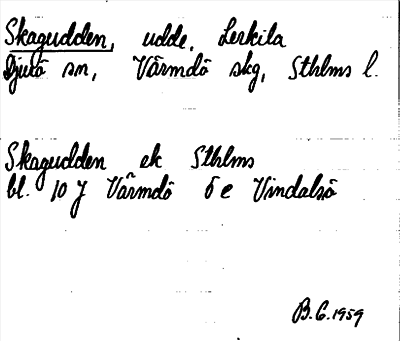 Skagudden, udde, Lerkila
Djurö sn, Värmdö skg, Sthlms l.
Skagudden ek Sthlms
bl. 10 J Värmdö 5 e Vindalsö
B.G. 1959